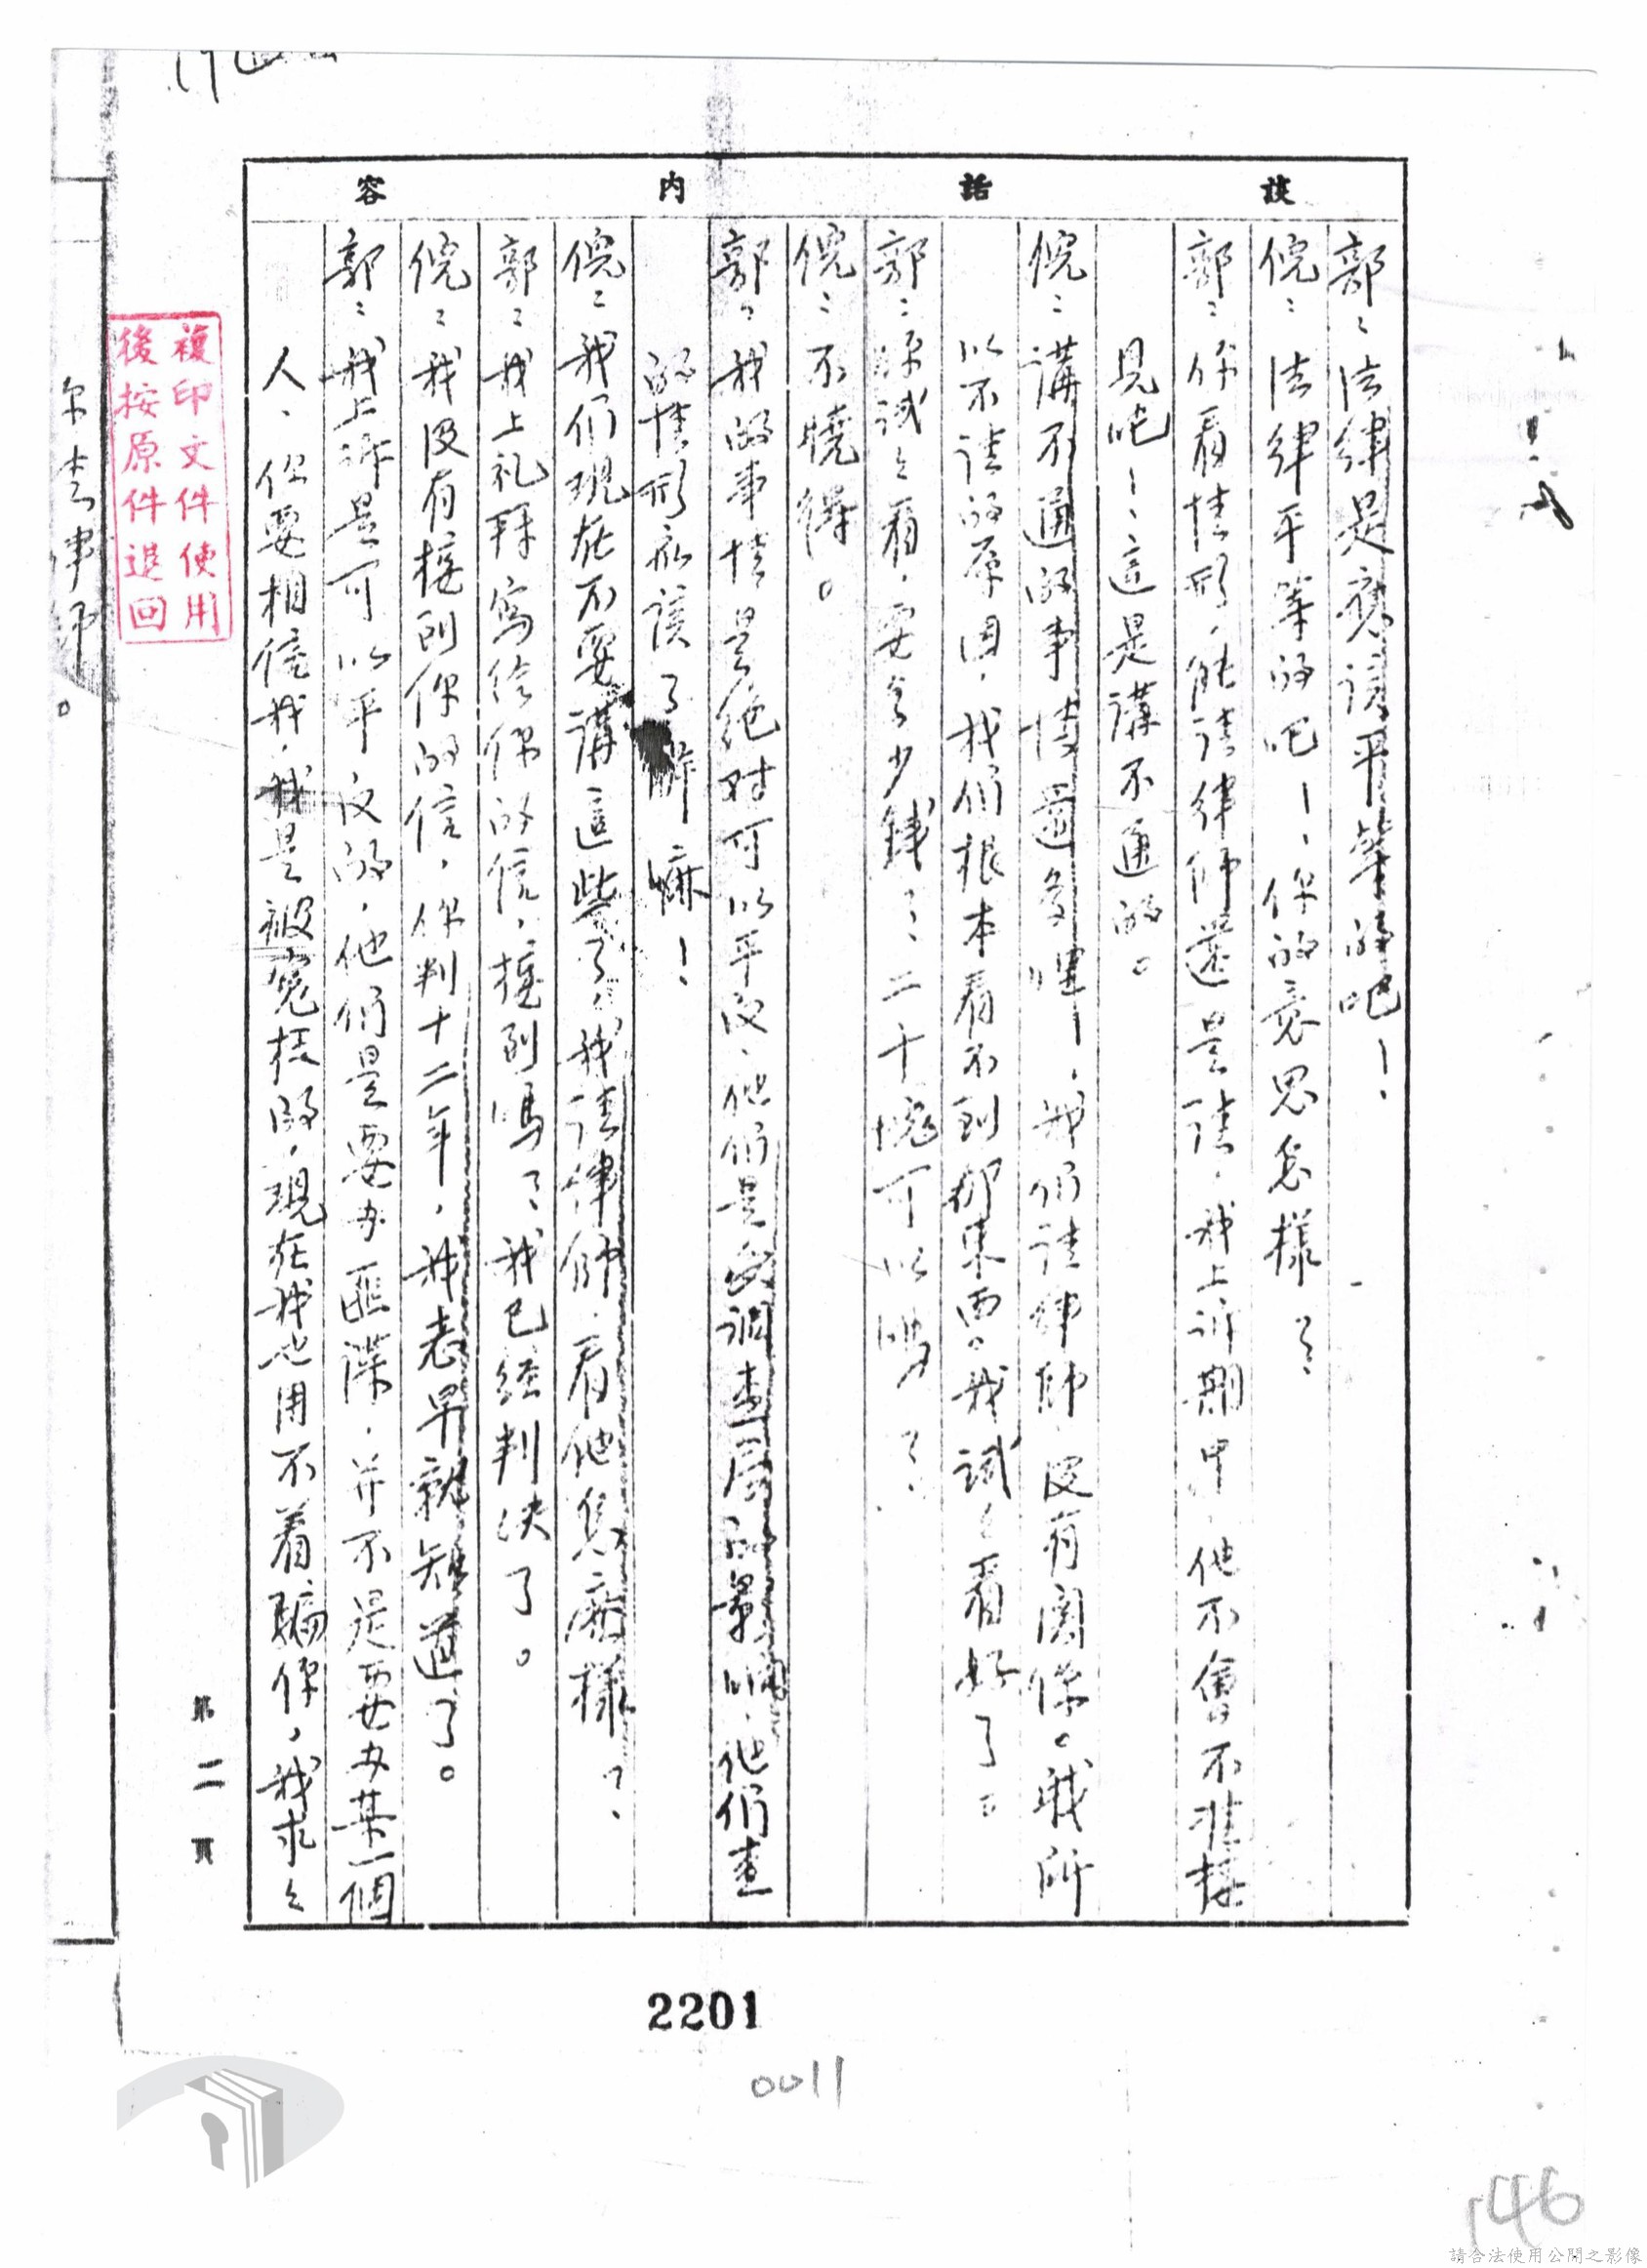 談話內容
郭：法律是應該平等的吧！
倪：法律平等的吧！，你的意思怎樣？
郭：你看情形，能請律師還是請，我上訴期中，他不會不准接
見吧！這是講不通的。
倪：講不通的事情還多哩！，我們請律師，沒有關係。我所
以不請的原因，我們根本看不到那東西。我試々看好了。
郭：你試々看，要多少錢？，二十塊可以嗎？
倪：不曉得。
郭：我的事情是絕对可以平反，他們是 調查局的 ，他們查
的情形應該了解嘛！
倪：我们現在不要講這些了，我請律師，看他怎麼樣？
郭：我上礼拜寫給你的信，接到嗎？我已經判決了。
倪：我没有接到你的信，你判十二年，我老早就知道了。
郭：我上訴是可以平反的，他們是要办匪諜，并不是要办某一個
人，你要相信我，我是被冤枉的，現在我也用不着騙你，我求々
第二頁
律師。
複印文件使用
後按原件退回
2201
0011
146
請合法使用公開之影像